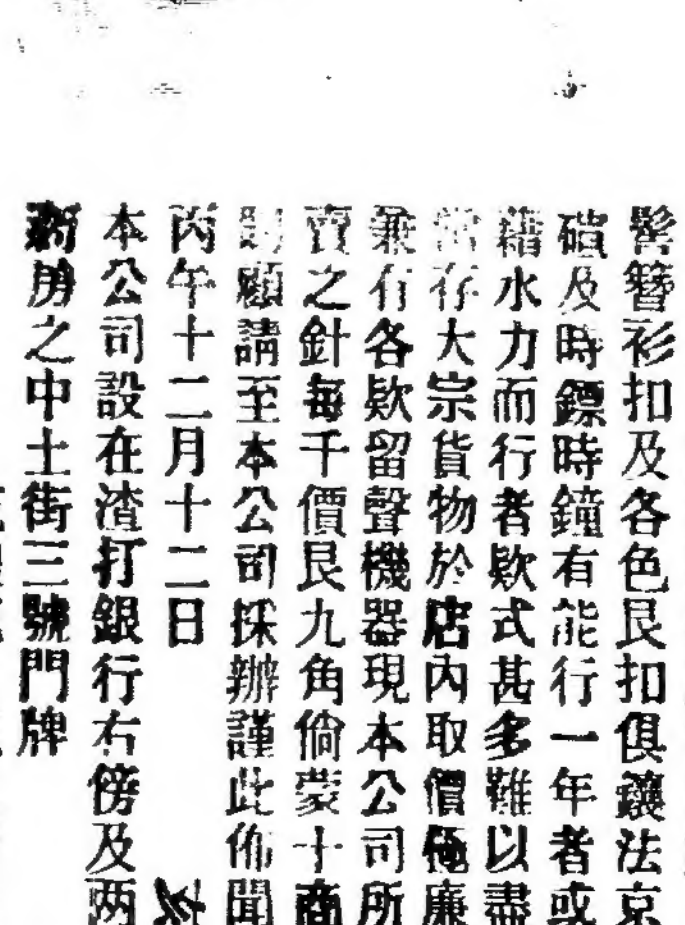 髻簪衫扣及各色艮扣俱鑲法京
碹及時鏢時鐘有能行一年者或
藉水力而行者欵式甚多難以盡
存大宗貨物於店內取價極廉
兼有各欵留聲機器現本公司所
賣之針每千價艮九角倘蒙士商
顧請至本公司採辦謹此佈聞
丙午十二月十二日
本公司設在渣打銀行右傍及两
之中土街三號門牌